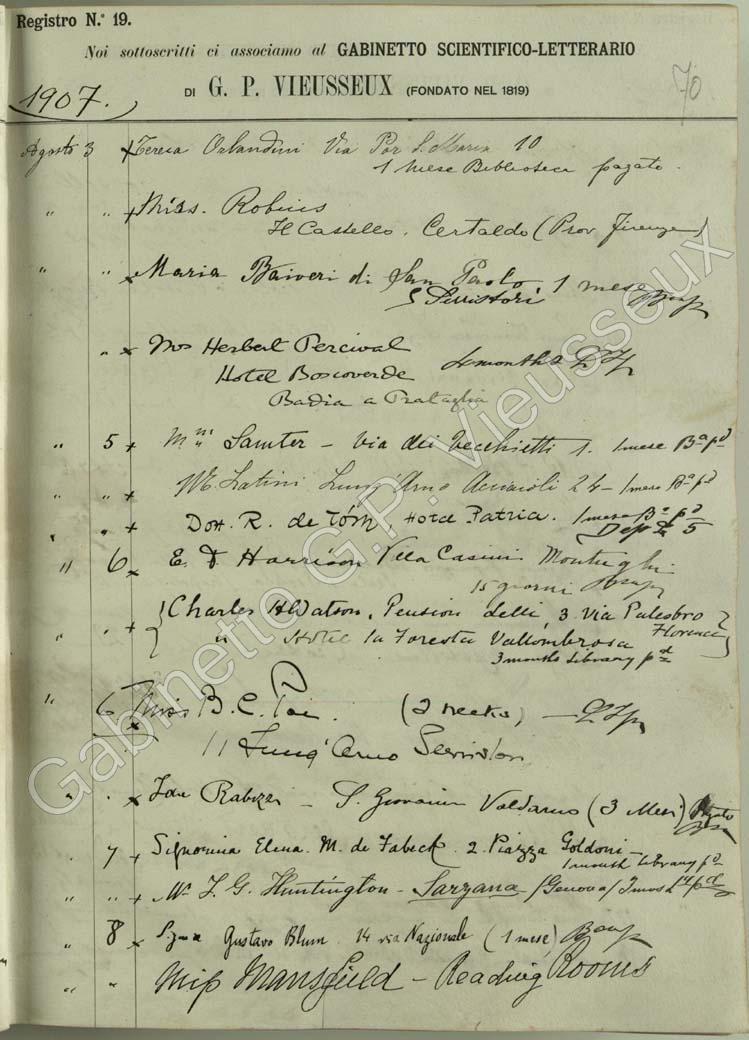 Registro N.° 19.
Noi sottoscritti ci associamo al GABINETTO SCIENTIFICO-LETTERARIO
DI G. P. VIEUSSEUX (FONDATO NEL 1819)
1907.
70
Agosto 3 x Teresa Orlandini Via Por S. Maria 10
1 mese Biblioteca pagato.
" " + Miss. Robins
Il Castello. Certaldo (Prov. Firenze)
" " x Maria di San Paolo. 1 mese
Serristori
" x Mrs Herbert Percival
Hotel Boscoverde months
Badia a Prataglia
" 5 + Samter - Via dei Vecchietti 1. 1 mese Ba pd
" " + Latini Lung'Arno Acciaioli 24 - 1 mese Ba pd
" " + Dott. R. de Hotel Patria. 1 mese Ba pd
Dep 5
" 6 x E. Harrison Villa Casini Montughi
15 giorni
" " + Charles H Watson, Pension 3 Via Palestro
" Hotel la Foresta Vallombrosa Florence
3 months Library pd
" 6 x Miss B. C. (2 weeks) -
11 Lung' Arno
" " x S. Giovanni Valdarno (3 Mesi) Pagato
" 7 + Signorina Elena M. de Fabeck. 2. Piazza Goldoni -
1 month Library pd
" " + Mr Huntington - Sarzana - (Genova)
" 8 x Gustavo Blum. 14 via Nazionale (1 mese)
" " Miss Mansfield - Reading Rooms
Gabinetto G.P. Vieusseux